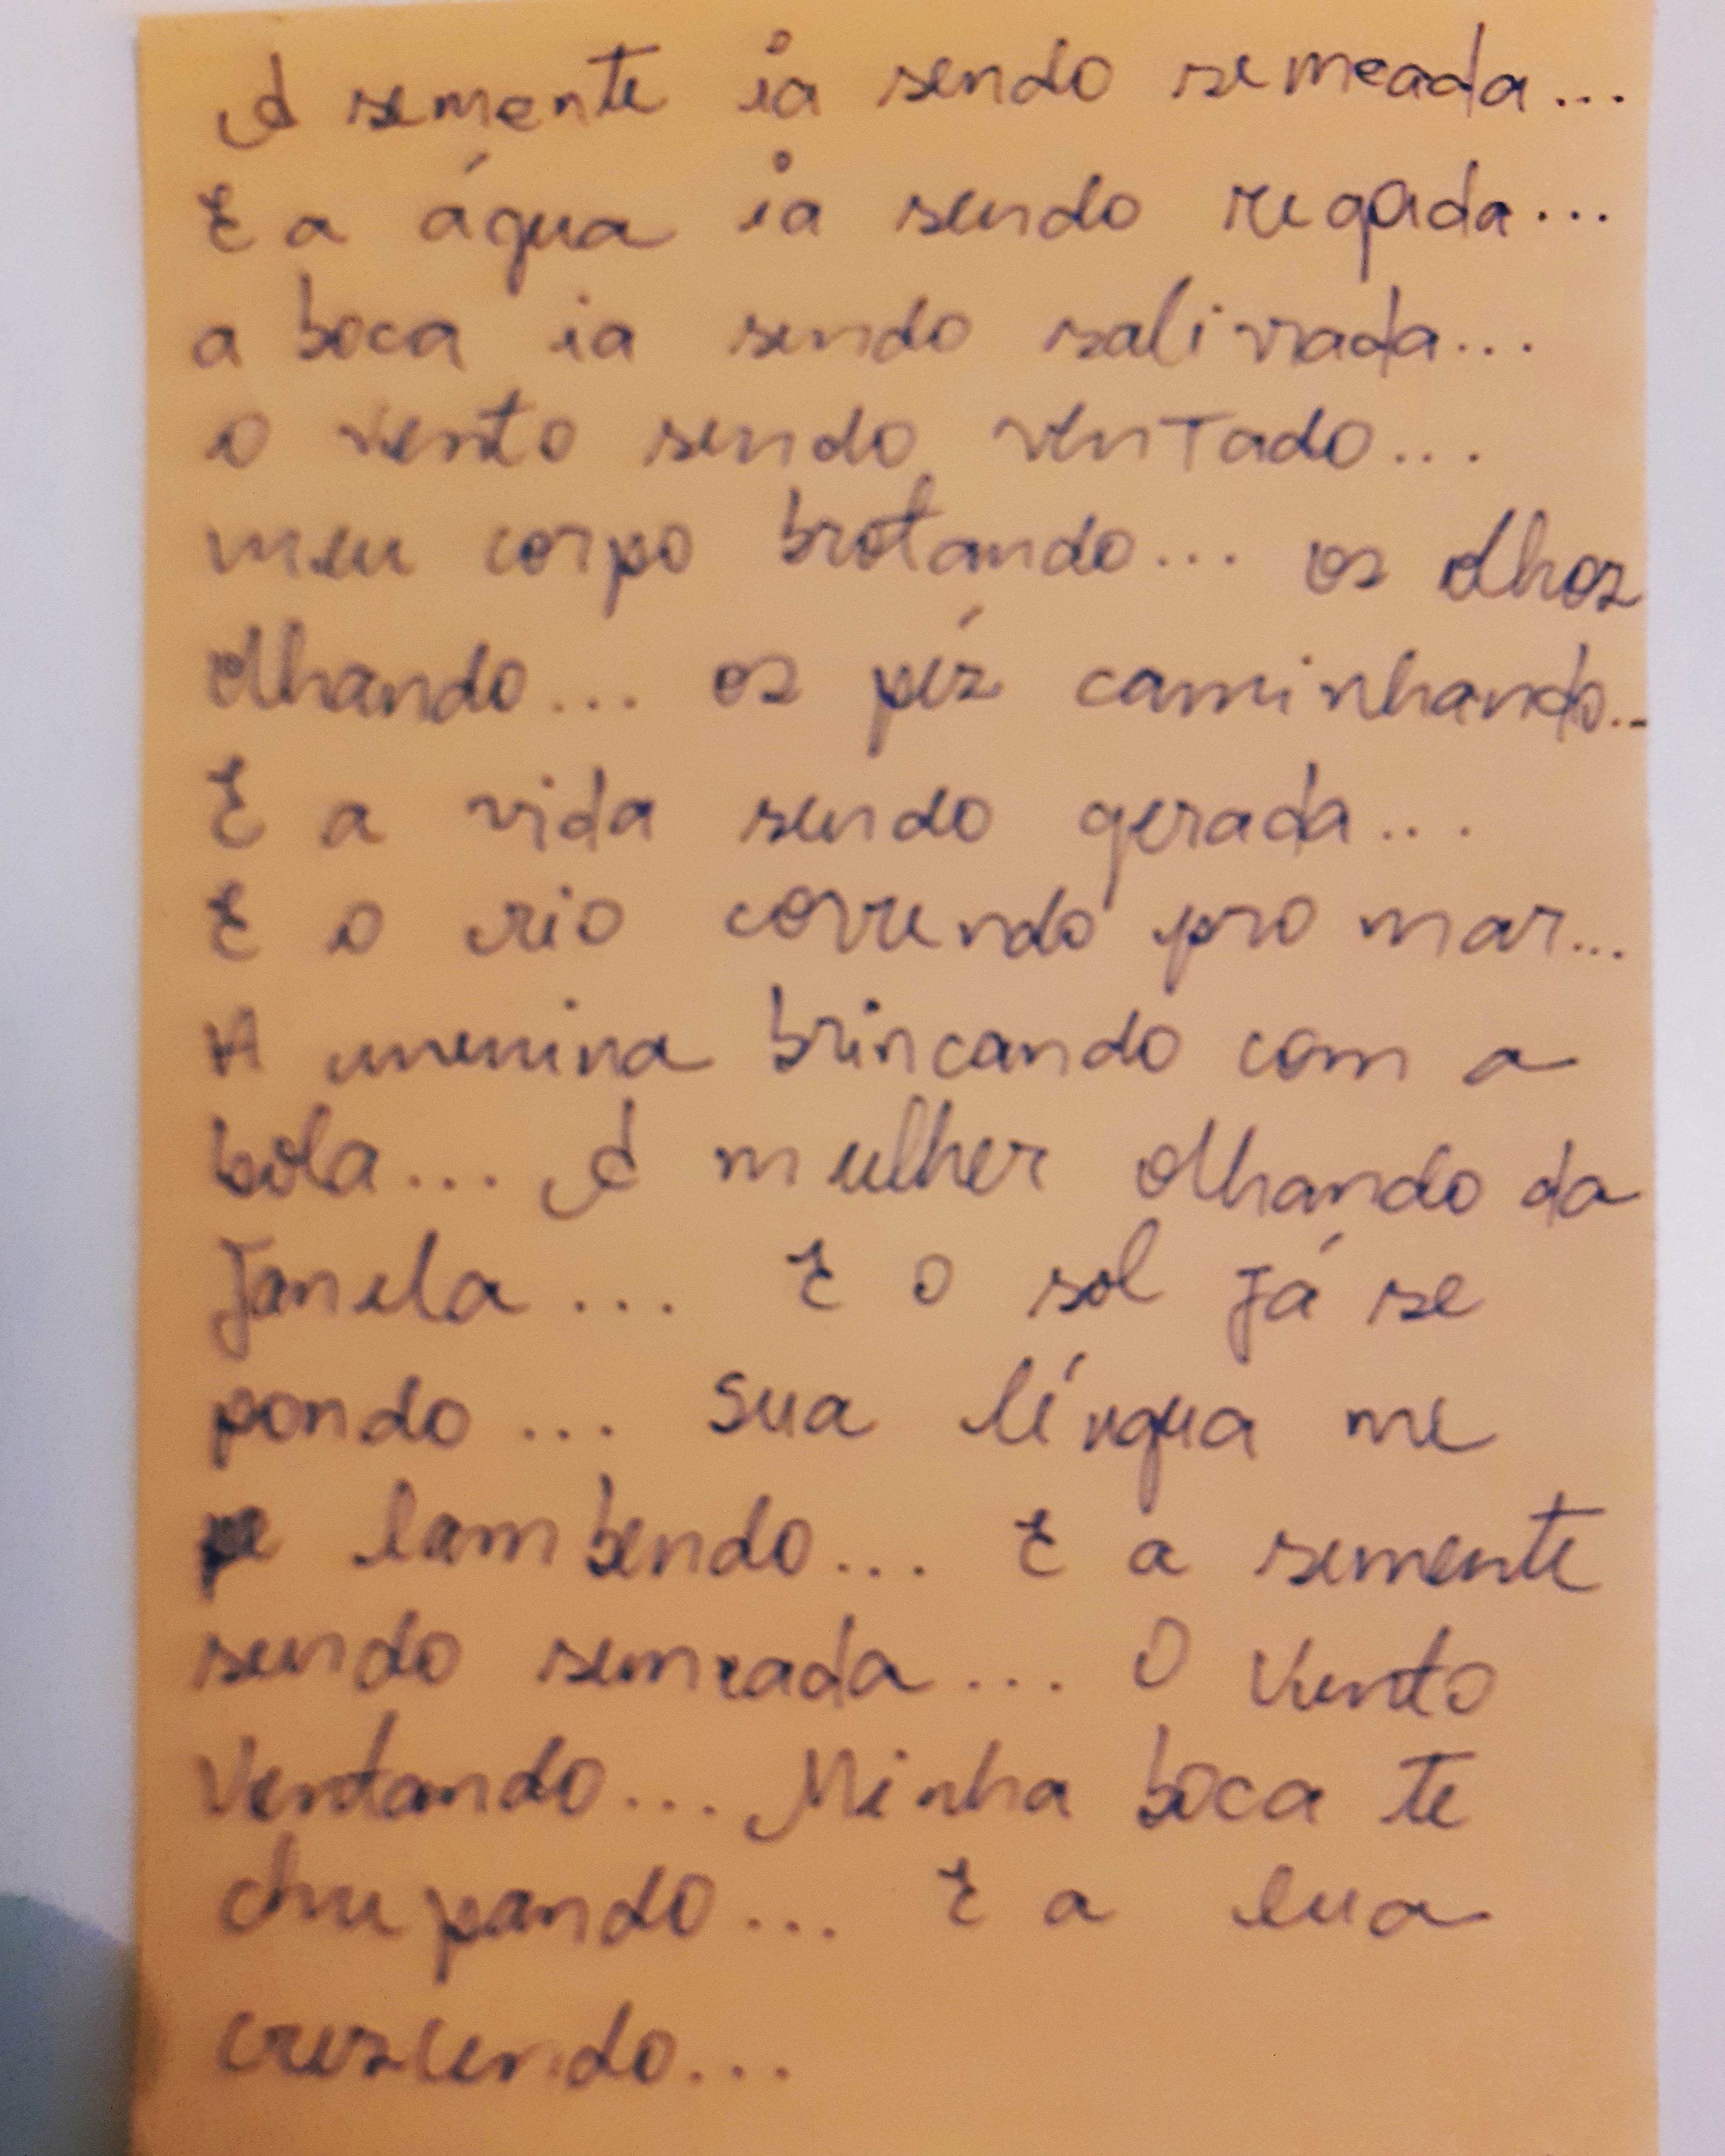 A semente ia sendo semeada...
E a água ia sendo regada...
a boca ia sendo salivada...
o vento sendo ventado...
meu corpo brotando... os olhos
olhando... os pés caminhando...
E a vida sendo gerada...
E o rio correndo pro mar...
A menina brincando com a
bola... A mulher olhando da
Janela... E o sol Já se
pondo... Sua língua me
lambendo... E a semente
sendo semeada... O Vento
Ventando... Minha boca te
chupando... E a lua
crescendo...